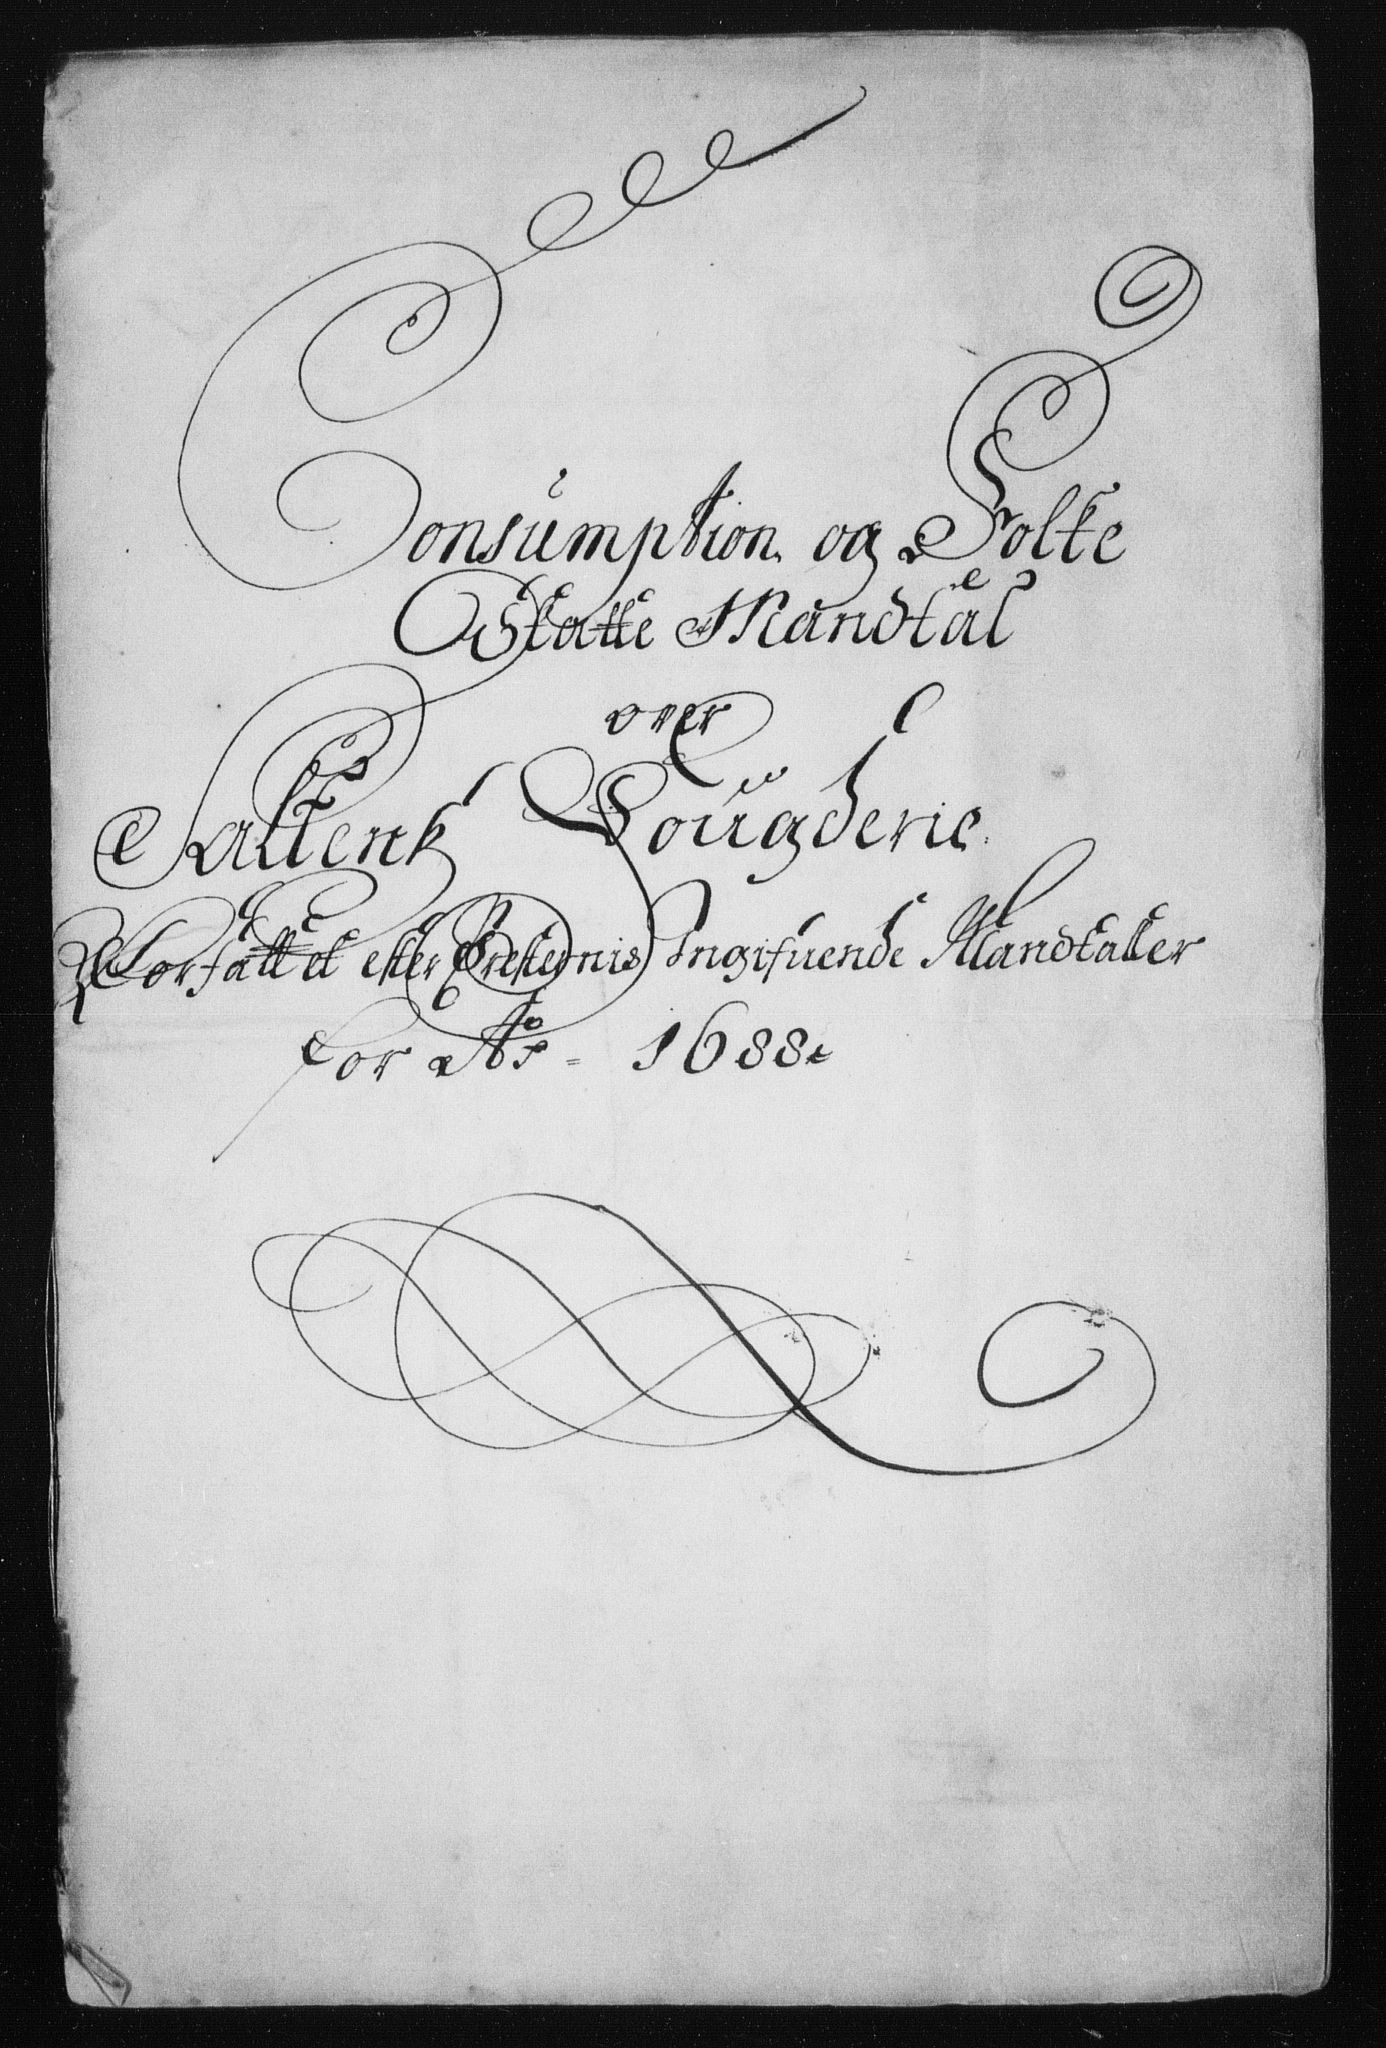 Consumption og Folke
Skatte Mandtal
over
Saltens Fougderie
Forfattet efter Presternis Ingifuende Mandtaller
for Ao 1688